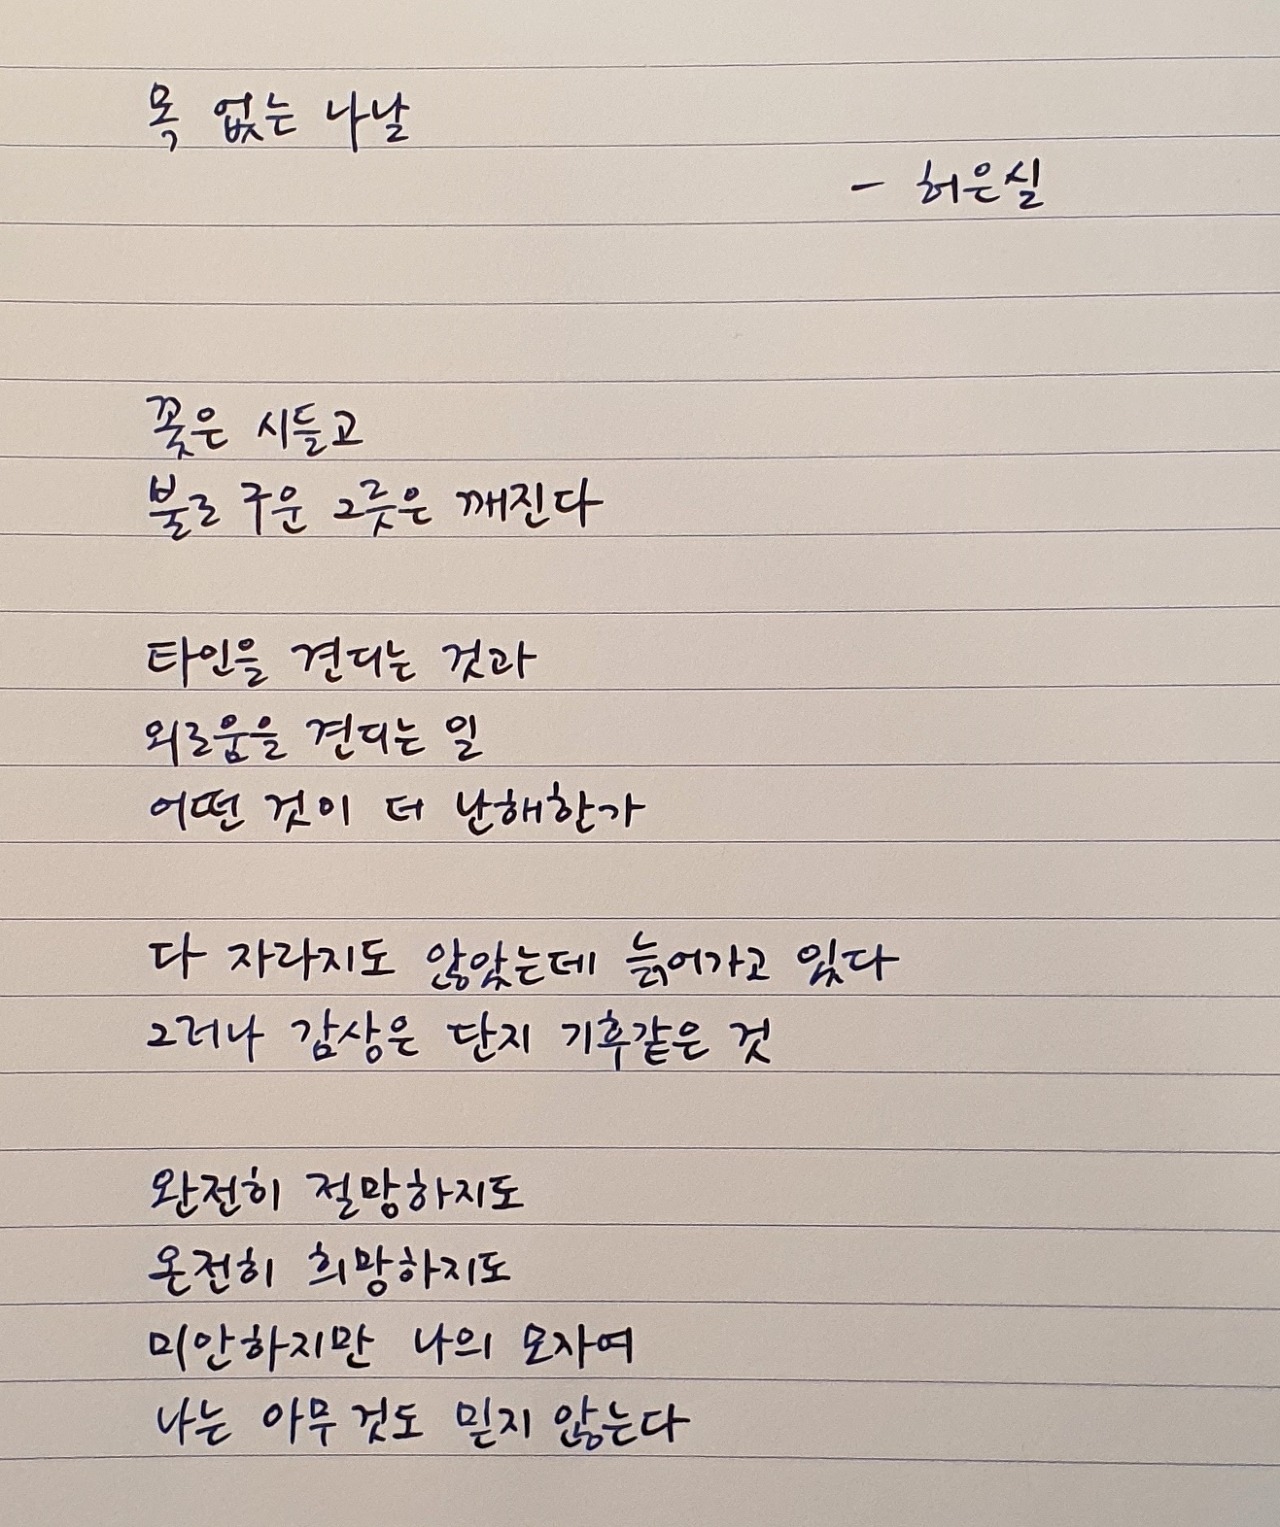 목 없는 나날
- 허은실
꽃은 시들고
불로 구운 그릇은 깨진다
타인을 견디는 것과
외로움을 견디는 일
어떤 것이 더 난해한가
다 자라지도 않았는데 늙어가고 있다
그러나 감상은 단지 기후같은 것
완전히 절망하지도
온전히 희망하지도
미안하지만 나의 모자여
나는 아무것도 믿지 않는다